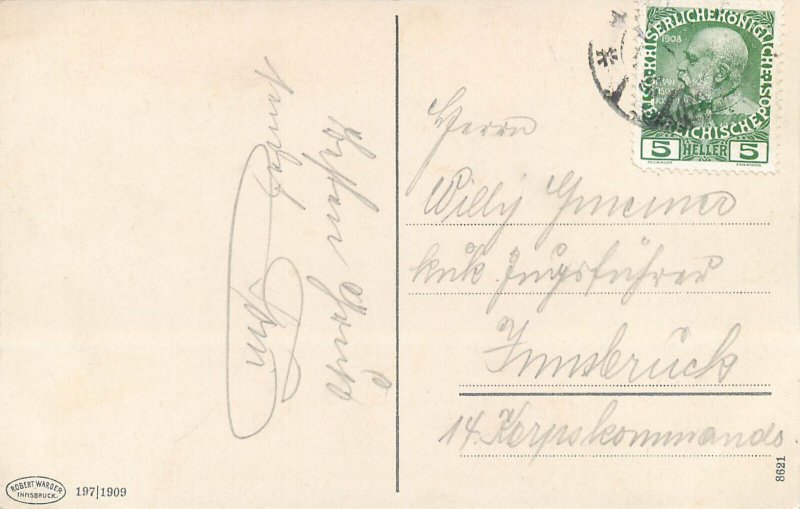 Schönen Gruß
Herrn
Willy Gmeiner
kuk. Zugsführer
Innsbruck
14. Korpskommando.
KAISERLICHE KÖNIGLICHE
ÖSTERREICHISCHE POST
1908
5 HELLER 5
ROBERT WARGER
INNSBRUCK.
197|1909
8621